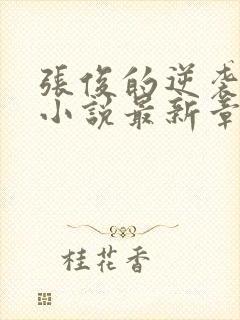 張俊的逆袭
小説最新章
桂花香